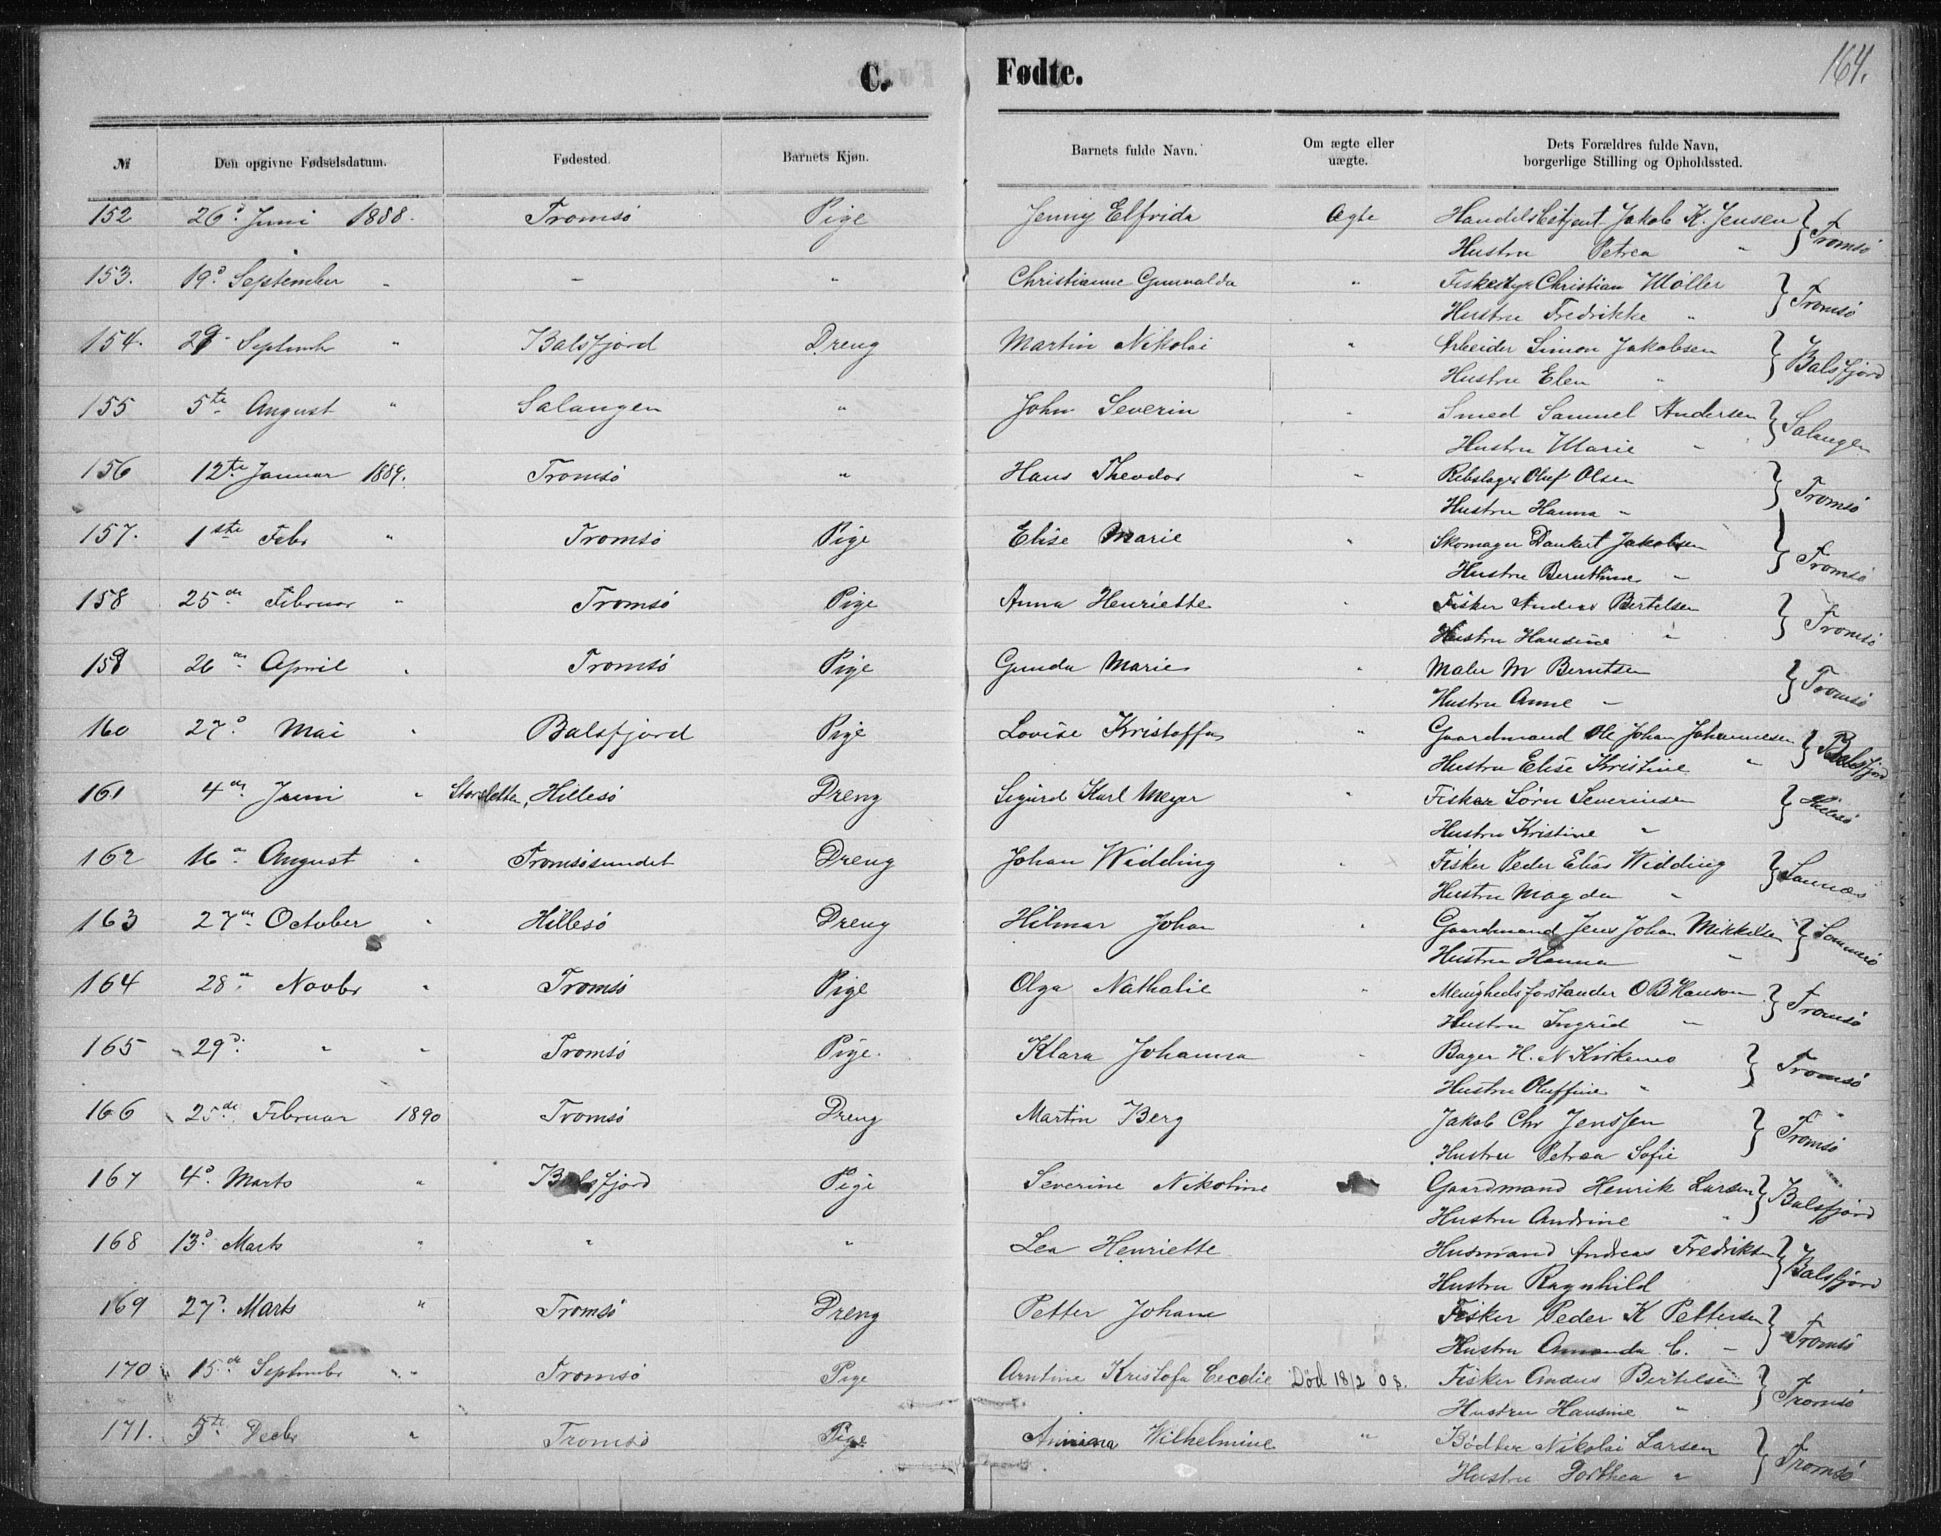 C. Fødte. 164.
№ Den opgivne Fødselsdatum. Fødested. Barnets Kjøn. Barnets fulde Navn. Om ægte eller uægte. Dets Forældres fulde Navn, borgerlige Stilling og Opholdssted.
152 26d. Juni 1888. Tromsø Pige Jenny Elfrida Ægte Handelsbetjent Jakob K. Jensen } Tromsø
Hustru Petrea "
153. 19d. September " - " Christianne Gunvalda " Christian Møller } Tromsø
Hustru Fredrikke "
154. 29 Septembr " Balsfjord Dreng Martin Nikolai " Arbeider Simon Jakobsen } Balsfjord
Hustru Elen "
155 5te August " Salangen " John Severin " Smed Samuel Andersen } Salangen
Hustru Marie "
156 12te Januar 1889. Tromsø " Hans Theodor " Rebslager Oluf Olsen } Tromsø
Hustru Hanna "
157. 1ste Febr " Tromsø Pige Elise Marie " Skomager Dankert Jakobsen } Tromsø
Hustru Bernthine "
158 25de Februar " Tromsø Pige Anna Henriette " Fisker Andreas Bertelsen } Tromsø
Hustru Hansine "
159 26de April " Tromsø Pige Gunda Marie " Maler M Berntsen } Tromsø
Hustru Anne "
160 27d. Mai " Balsfjord Pige Lovise Kristoffa " Gaardmand Ole Johan Johannesen } Balsfjord
Hustru Elise Kristine "
161 4de Juni " Storsletten, Hillesø Dreng Sigurd Karl Meyer " Fisker Sørn Severinsen } Hillesø
Hustru Kristine "
162 16de August " Tromsøsundet Dreng Johan Widding " Fisker Peder Elias Widding }
Hustru Magda "
163 27de October " Hillesø Dreng Hilmar Johan " Gaardmand Jens Johan Mikkelsen } Sommerø
Hustru Hanna "
164 28de Novbr " Tromsø Pige Olga Nathalie " Menighedsforstander O B Hanson } Tromsø
Hustru Ingrid "
165 29d. " " Tromsø Pige. Klara Johanna " Bager H. N Kirkemo } Tromsø
Hustru Oluffine "
166 25de Februar 1890 Tromsø Dreng Martin Berg Jakob Chr Jenssen } Tromsø
Hustru Petrea Sofie
167 4d. Marts " Balsfjord Pige Severine Nikoline Gaardmand Henrik Larsen } Balsfjord
Hustru Andrine "
168 13d. Marts " " " Lea Henriette Husmand Andreas Fredriksen } Balsfjord
Hustru Ragnhild
169 27d. Marts " Tromsø Dreng Petter Johan Fisker Peder K Pettersen } Tromsø
Hustru Amanda C. "
170 15de Septembr " Tromsø Pige Arntine Kristofa Cecelie Død 18/2 08. Fisker Andreas Bertelsen } Tromsø
Hustru Hansine "
171. 5te Decbr " Tromsø Pige Wilhelmine " Bødker Nikolai Larsen } Tromsø
Hustru Dorthea "